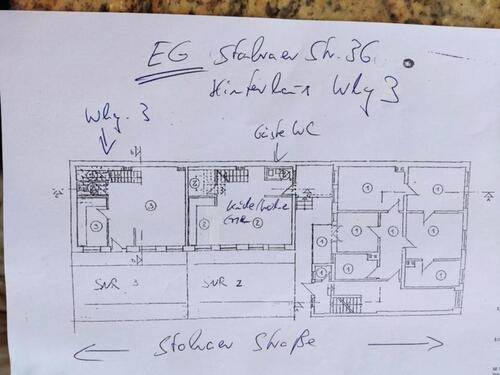 EG Stolraer Str. 36
Hinterhaus Whg 3
Whg. 3
Gäste WC
2
2
3
3
2
2
1
1
1
1
1
1
1
1
SNR 3
SNR 2
Stolraer Straße